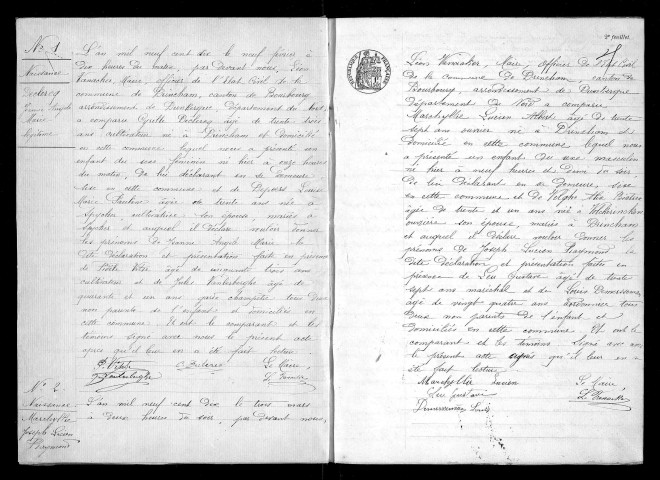 No 1
Naissance
Declercq
Jeanne Angèle
Marie
L'an mil neuf cent dix le neuf février à
dix heures du matin, par devant nous, Léon
Maire, officier de l'Etat Civil de la
commune de Drincham, canton de Bourbourg
arrondissement de Dunkerque, Département du Nord,
a comparu Cyrille Declercq âgé de trente trois
ans cultivateur né à Drincham et domicilié
en cette commune lequel nous a présenté un
enfant du sexe féminin né hier à onze heures
du matin, de lui déclarant en sa demeure
sise en cette commune et de
Marie Pauline âgée de trente ans née à
cultivatrice son épouse mariés à
et auquel il déclare vouloir donner
les prénoms de Jeanne Angèle Marie la
dite déclaration et présentation fait en présence
de Victor âgé de cinquante trois ans
cultivateur et de Jules Vanlerberghe âgé de
quarante et un ans garde champêtre tous deux
non parents de l'enfant et domiciliés en
cette commune Et ont le comparant et les
témoins signé avec nous le présent acte
après qu'il leur en a été fait lecture
Le Maire
No 2
Naissance
Marchyllie
Joseph Lucien
Raymond
L'an mil neuf cent dix le trois mars
à deux heures du soir, par devant nous,
2e feuillet
Léon Maire, officier de l'Etat Civil
de la commune de Drincham, canton de
Bourbourg, arrondissement de Dunkerque
Département du Nord a comparu
Marchyllie Lucien Albert âgé de trente
sept ans ouvrier né à Drincham et
domicilié en cette commune lequel nous
a présenté un enfant du sexe masculin
né hier à neuf heures et demie du soir
de lui déclarant en sa demeure, sise
en cette commune et de
âgée de trente et un ans née à
ouvrière son épouse, mariés à Drincham
et auquel il déclare vouloir donner les
prénoms de Joseph Lucien Raymond la
dite déclaration et présentation faite en
présence de Leu Gustave âgé de trente
sept ans maréchal et de Louis
âgé de vingt quatre ans cordonnier tous
deux non parents de l'enfant et
domiciliés en cette commune Et ont le
comparant et les témoins signé avec nous
le présent acte après qu'il leur en a
été fait lecture
Marchyllie Lucien Le Maire
Leu Gustave